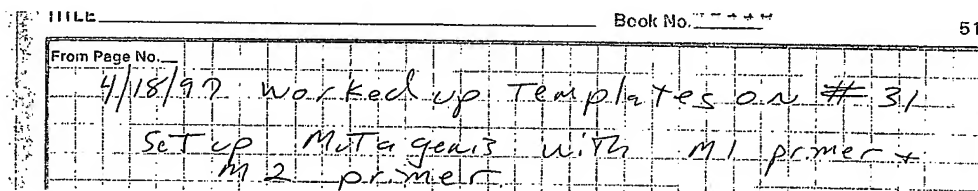 TITLE Book No. 51
From Page No.
4/18/97 Worked up Templates on # 31
SeT up MuTagenis wiTh M1 primer +
M2 primer